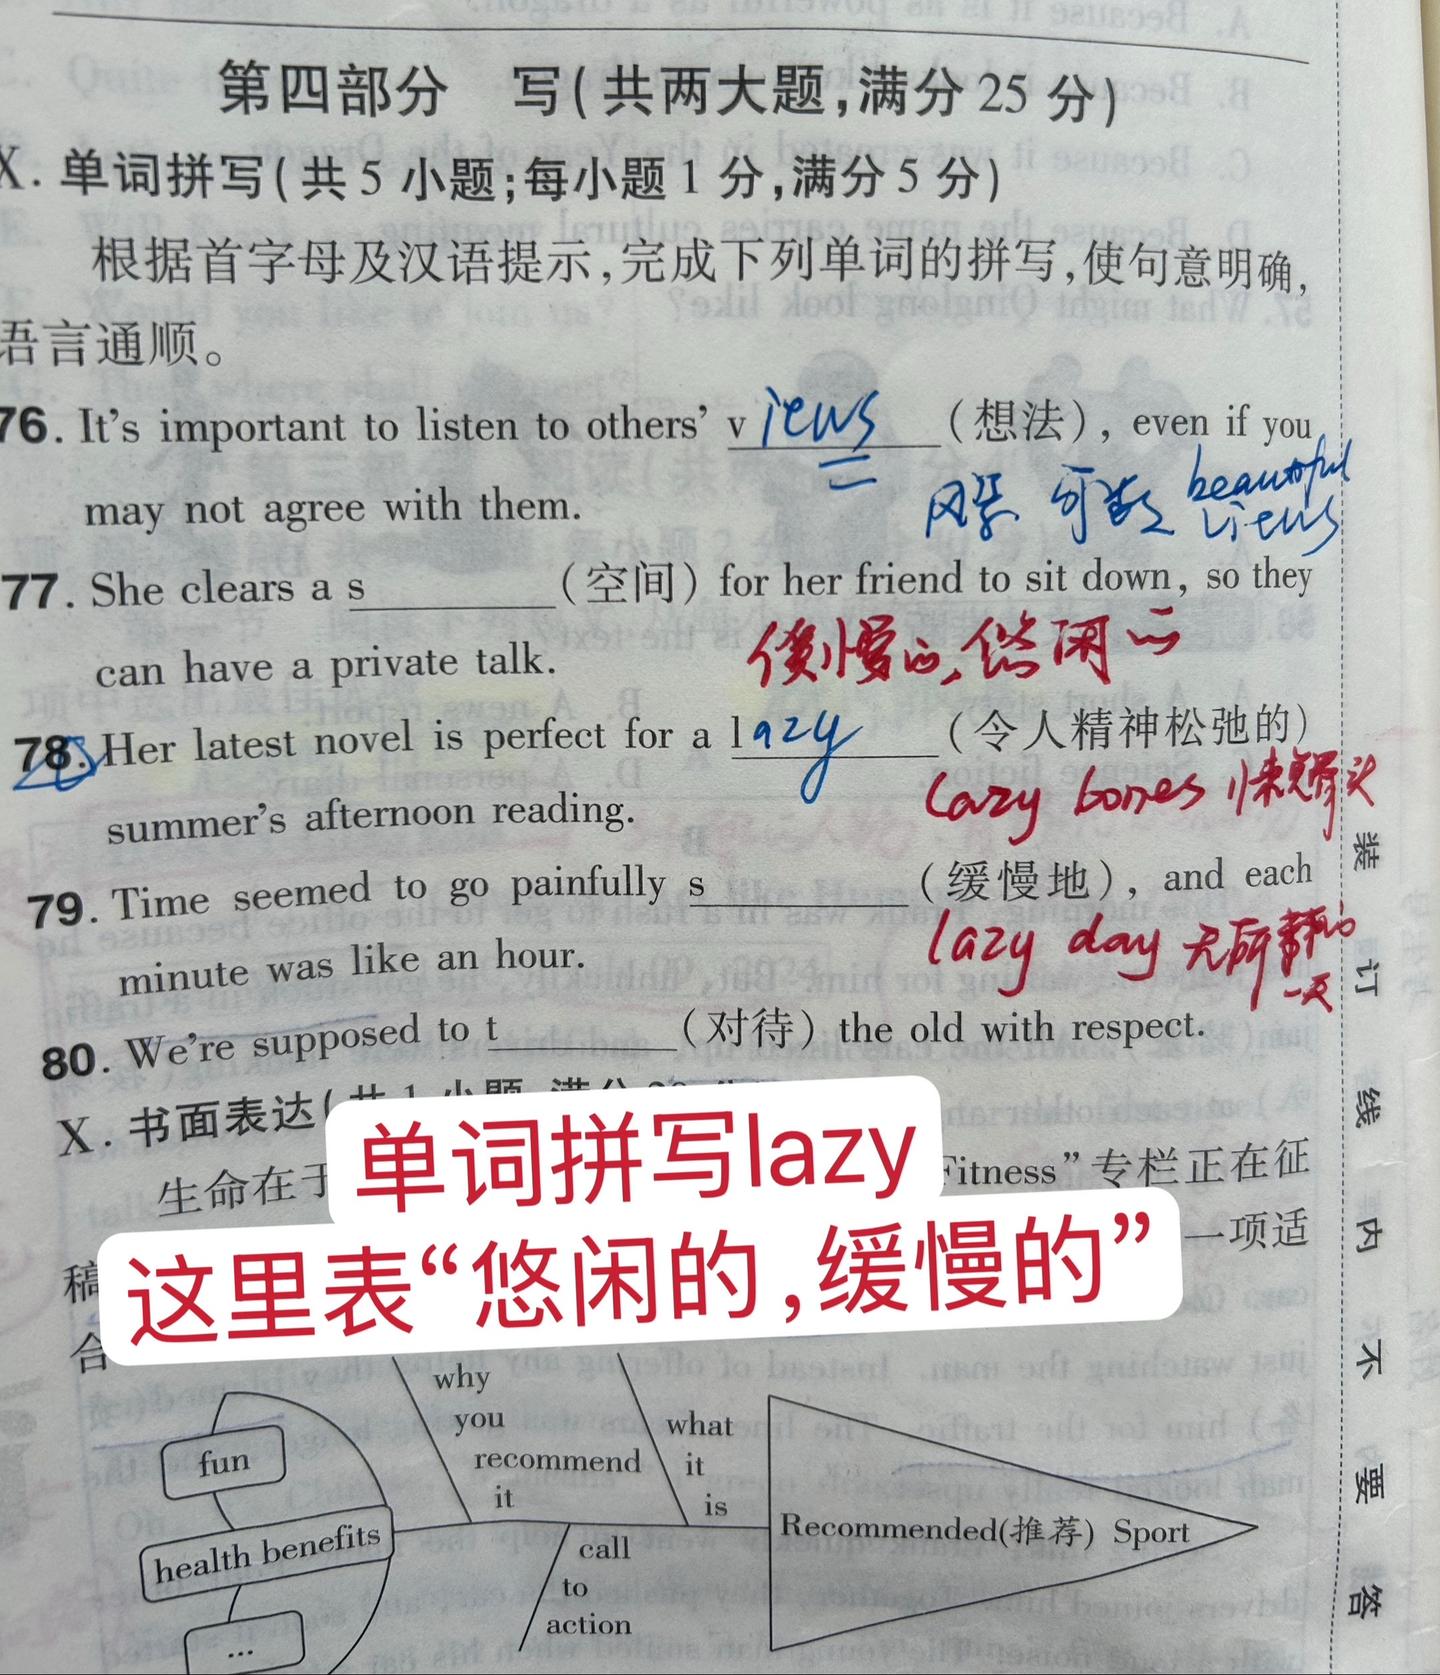 第四部分 写(共两大题,满分 25 分)
X. 单词拼写(共 5 小题;每小题 1 分,满分 5 分)
根据首字母及汉语提示,完成下列单词的拼写,使句意明确,
语言通顺。
76. It's important to listen to others' views (想法), even if you
may not agree with them.
风景 可数 beautiful
views
77. She clears a s________ (空间) for her friend to sit down, so they
can have a private talk.
缓慢的,悠闲的
78. Her latest novel is perfect for a lazy (令人精神松弛的)
summer's afternoon reading.
lazy bones 懒骨头
79. Time seemed to go painfully s________ (缓慢地), and each
minute was like an hour.
lazy day 无所事事的
一天
80. We're supposed to t________ (对待) the old with respect.
X. 书面表达(共 1 小题,满分
生命在于
Fitness”专栏正在征
稿
一项适
合
单词拼写lazy
这里表“悠闲的,缓慢的”
why
you
recommend
it
what
it
is
fun
health benefits
...
call
to
action
Recommended(推荐) Sport
装
订
线
内
不
要
答